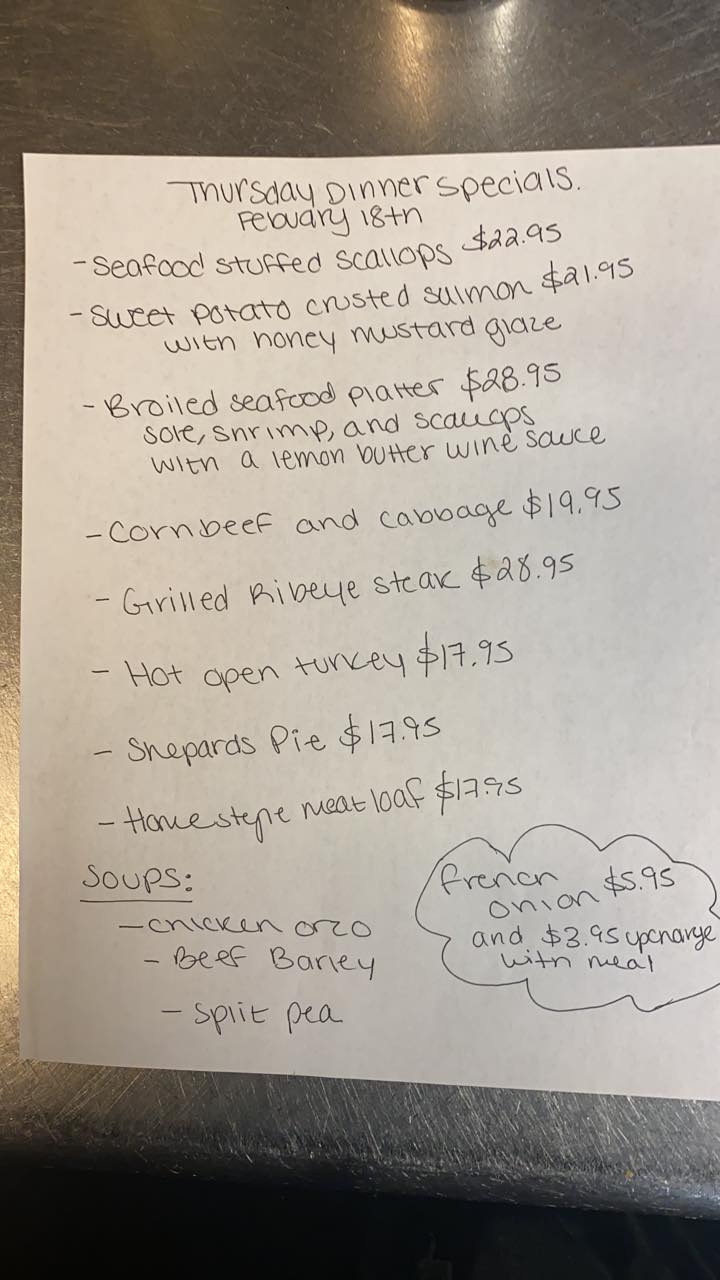 Thursday Dinner specials.
Febuary 18th
- Seafood stuffed scallops $22.95
- Sweet potato crusted salmon $21.95
with honey mustard glaze
- Broiled seafood platter $28.95
sole, shrimp, and scallops
with a lemon butter wine sauce
- Cornbeef and cabbage $19.95
- Grilled Ribeye steak $28.95
- Hot open turkey $17.95
- Shepards Pie $17.95
- Homestyle meatloaf $17.95
Soups:
- chicken orzo
- Beef Barley
- Split pea
french
onion $5.95
and $3.95 upcharge
with meal